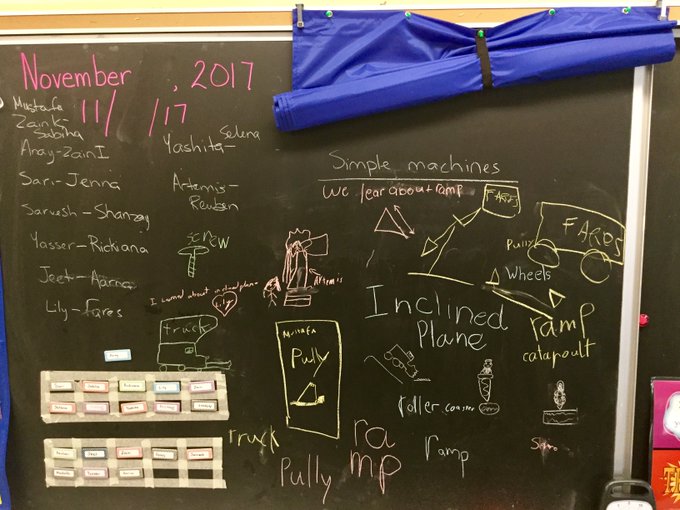 November , 2017
11/ /17
Mustafa
Zain K-
Sabiha
Anay-Zain I
Sari-Jenna
Sarvesh-Shanzay
Yasser-Rickiana
Jeet-Aarna
Lily-Fares
Yashita-
Selena
Artemis-
Reuben
Simple machines
we lear about ramp
FARES
FARES
Pully
Wheels
screw
Artemis
I learned about inclined plane
Lily
truck
Mustafa
Pully
Inclined
Plane
ramp
catapoult
roller coaster
truck
ra
mp
ramp
Pully